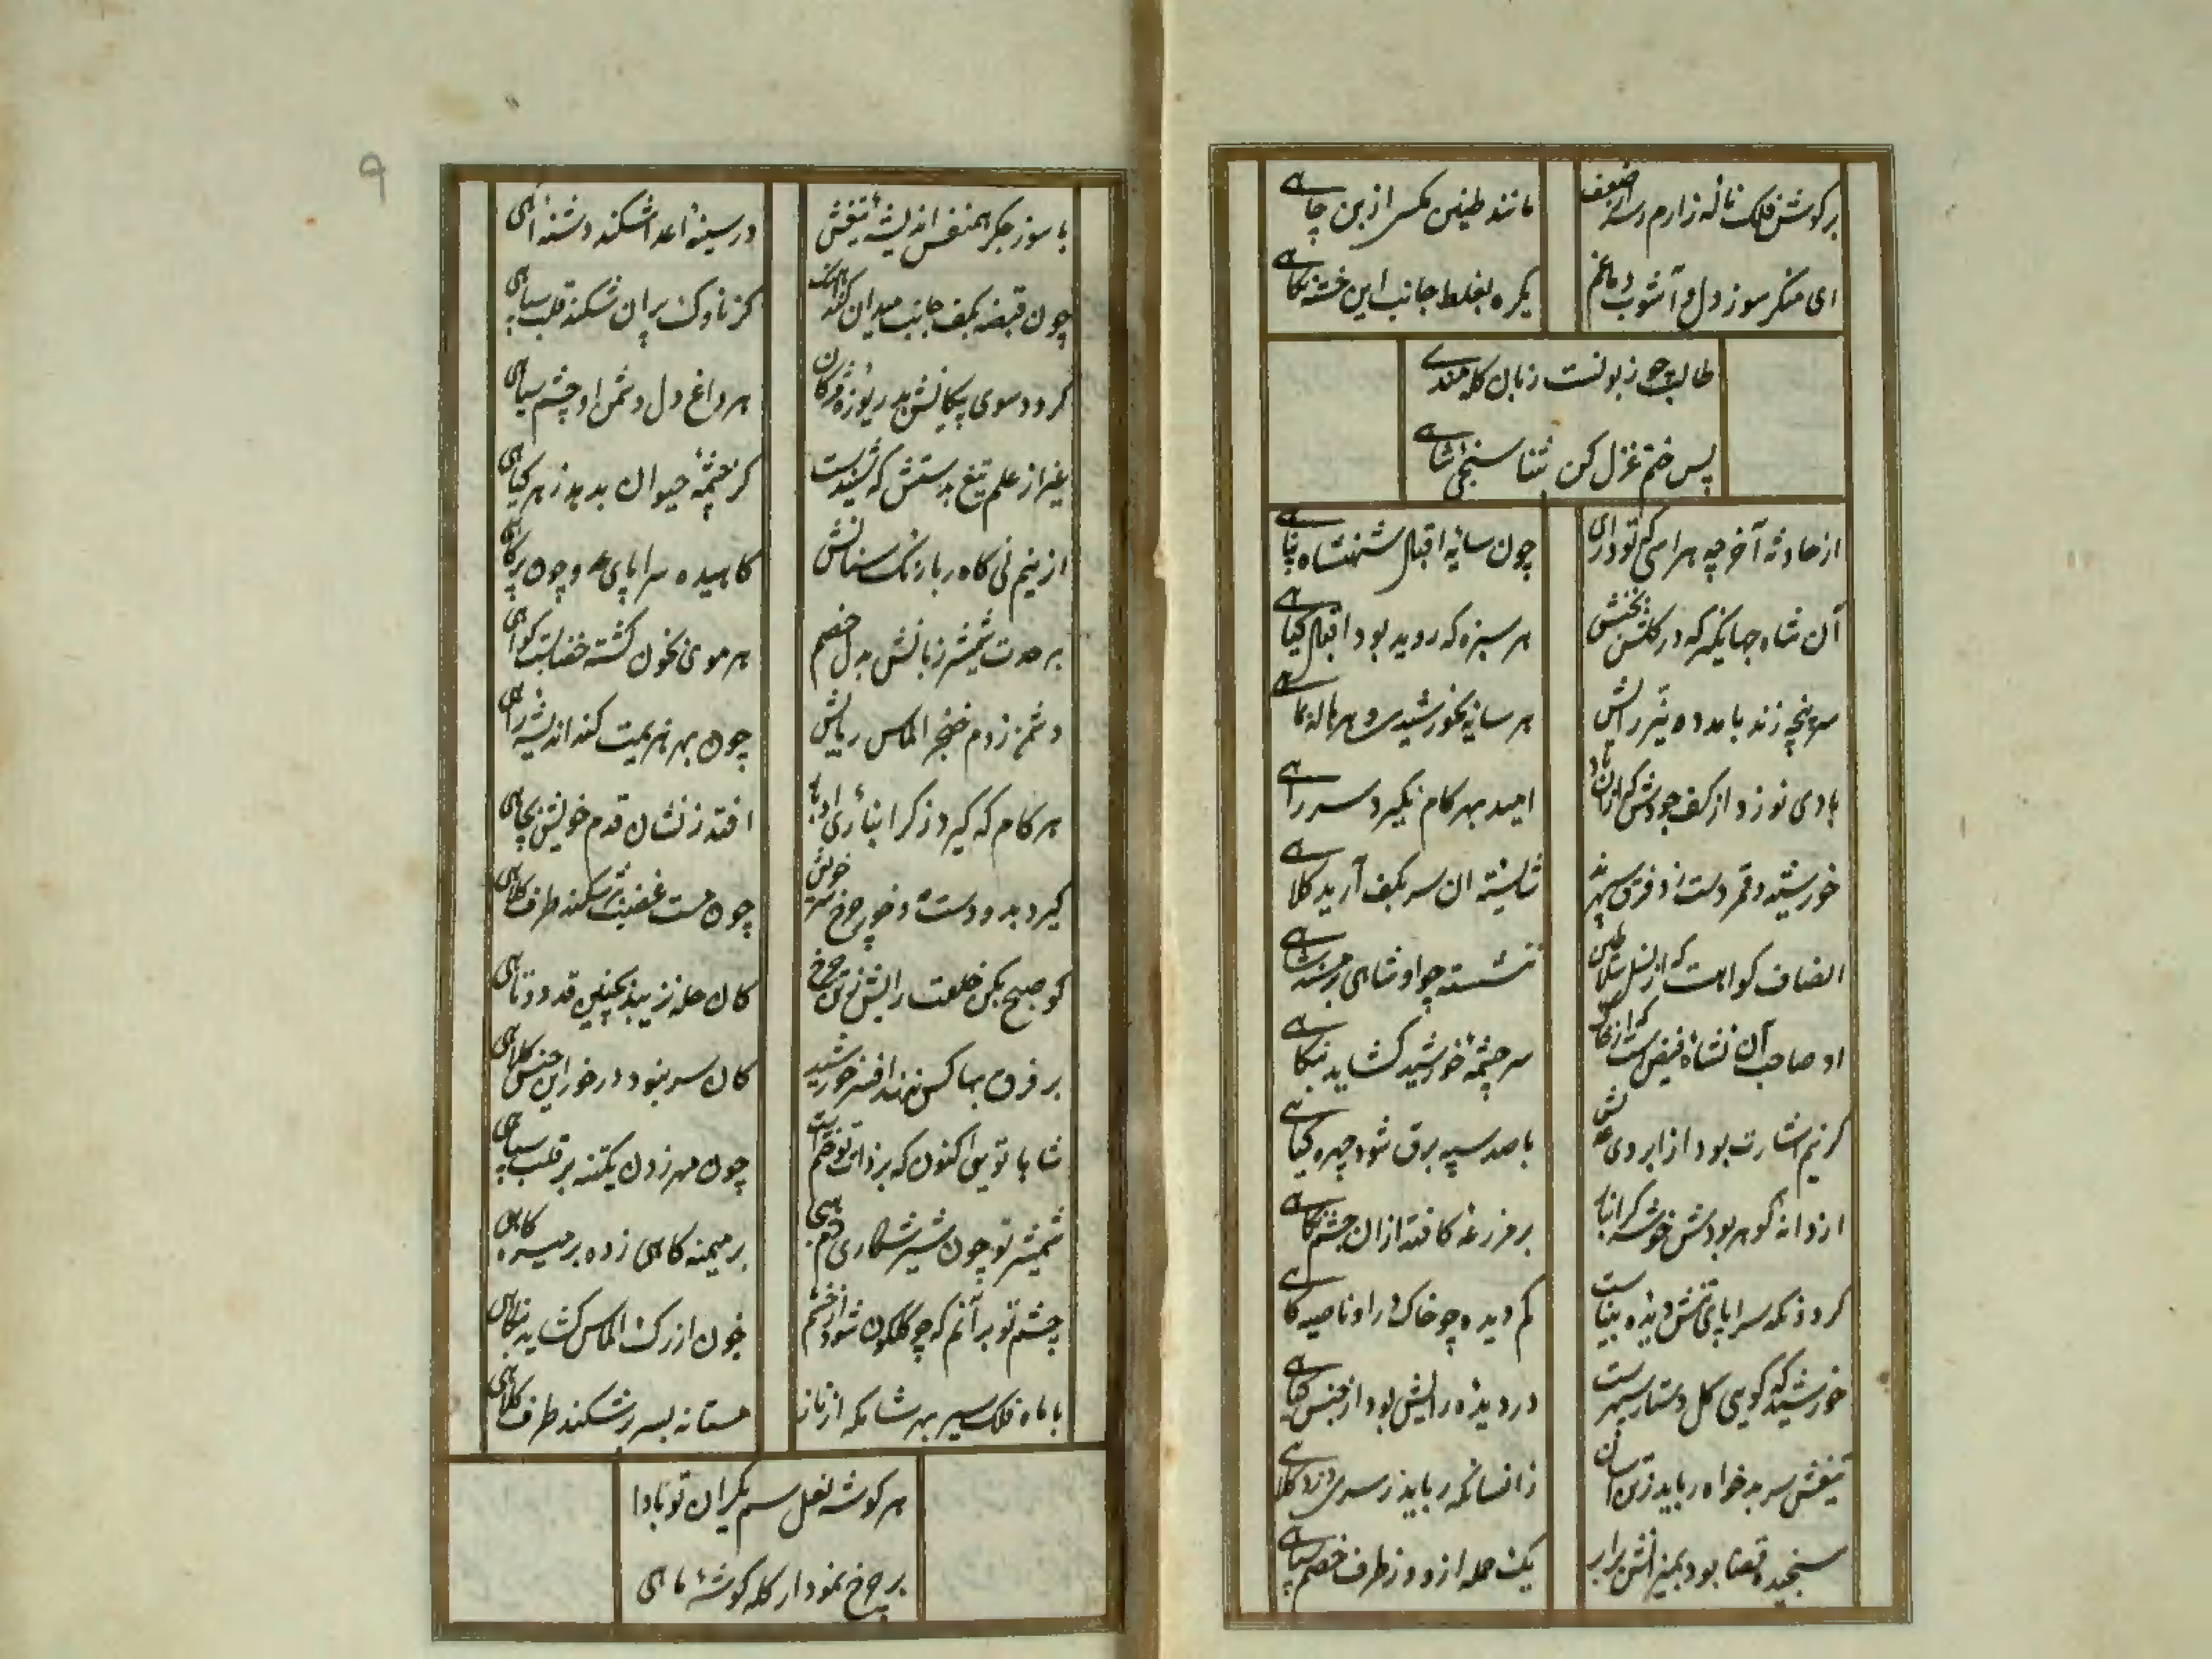 بر گوش فلک ناله زارم رسد از ضعف
مانند طنین مگس از بن چاهی
ای منکر سوز دل و آشوب دماغم
یکره بغلط جانب این خسته نگاهی
طالب چو زبونست زبان گله مندی
پس ختم غزل کن بثنا سنجی شاهی
از حادثه آخر چه هراسی که تو داری
چون سایه اقبال شهنشاه پناهی
آن شاه جهانگیر که در گلشن بختش
هر سبزه که روید بود اقبال گیاهی
سر پنجه زند با مدد
هر سایه بخورشیدی و هر هاله بماهی
امید بهر کام نگیرد سر راهی
خورشید و قمر دست زد فرق سپهرند
شایسته ان سر بکف آرید کلاهی
انصاف گواهست که از نسل سلاطین
ننشسته چو او شاهی بر مسند شاهی
او صاحب آن نشاه فیض است که از خاک
سر چشمه خورشید گشاید بنگاهی
گر نیم اشارت بود از ابروی
با صد سپه برق شود چهره گیاهی
از دانه گوهر بودش خوشه گرانبار
بر مزرعه کافتد ازان چشم نگاهی
گردد نگه سراپای تنش دیده بیناست
کم دیده چو خاک در او ناصیه گاهی
خورشید که گویی گل دستار سپهرست
در دیده رایش بود از جنس گیاهی
تیغش سر بدخواه رباید ز تن آسان
زانسانکه رباید ز سری دزد کلاهی
سنجیده قضا بود بمیزانش برابر
یک حمله ازو وز طرف خصم سپاهی
۹
با سوز جگر همنفس اندیشه تیغش
در سینه اعدا شکند دشنه آهی
چون قبضه بکف جانب میدان کند آهنگ
کز ناوک پران شکند قلب سپاهی
گردد سوی پیکانش بدریوزه مژگان
هر داغ دل دشمن او چشم سیاهی
غیر از علم تیغ بدستش که شنیدست
کز چشمه حیوان بدمد زهر گیاهی
از نیم نی کاه ربا رنگ سنانش
کاهیده سراپای عدو چون پر کاهی
بر حدت شمشیر زبانش بدل خصم
هر موی بخون گشته خضابست گواهی
دشمن ز دم خنجر الماس ربایش
چون بهر هزیمت کند اندیشه راهی
هر کام که گیرد ز گرانباری ادبار
افتد ز نشان قدم خویش بچاهی
گیرد بدو دست خود چرخ سر خویش
چون مست غضب بشکند طرف کلاهی
گو صبح مکن خلعت رایش بتن چرخ
کان حله نزیبد بچنین قد دوتاهی
بر فرق بها کس ننهد افسر خورشید
کان سر نبود در خور این جنس کلاهی
شاها تویی اکنون که بر ذات تو ختم است
چون مهر زدن یکتنه بر قلب سپاهی
شمشیر تو چون شیر شکاری
بر میمنه گاهی زده بر میسره گاهی
چشم تو بر آنم که چو گلگون شود از خشم
خون از رگ الماس گشاید بنگاهی
با ماه فلک سیر بهر شام که از ناز
مستانه بسر بر شکند طرف کلاهی
هر گوشه نعل سم یکران تو بادا
بر چرخ نمودار کله گوشه ماهی